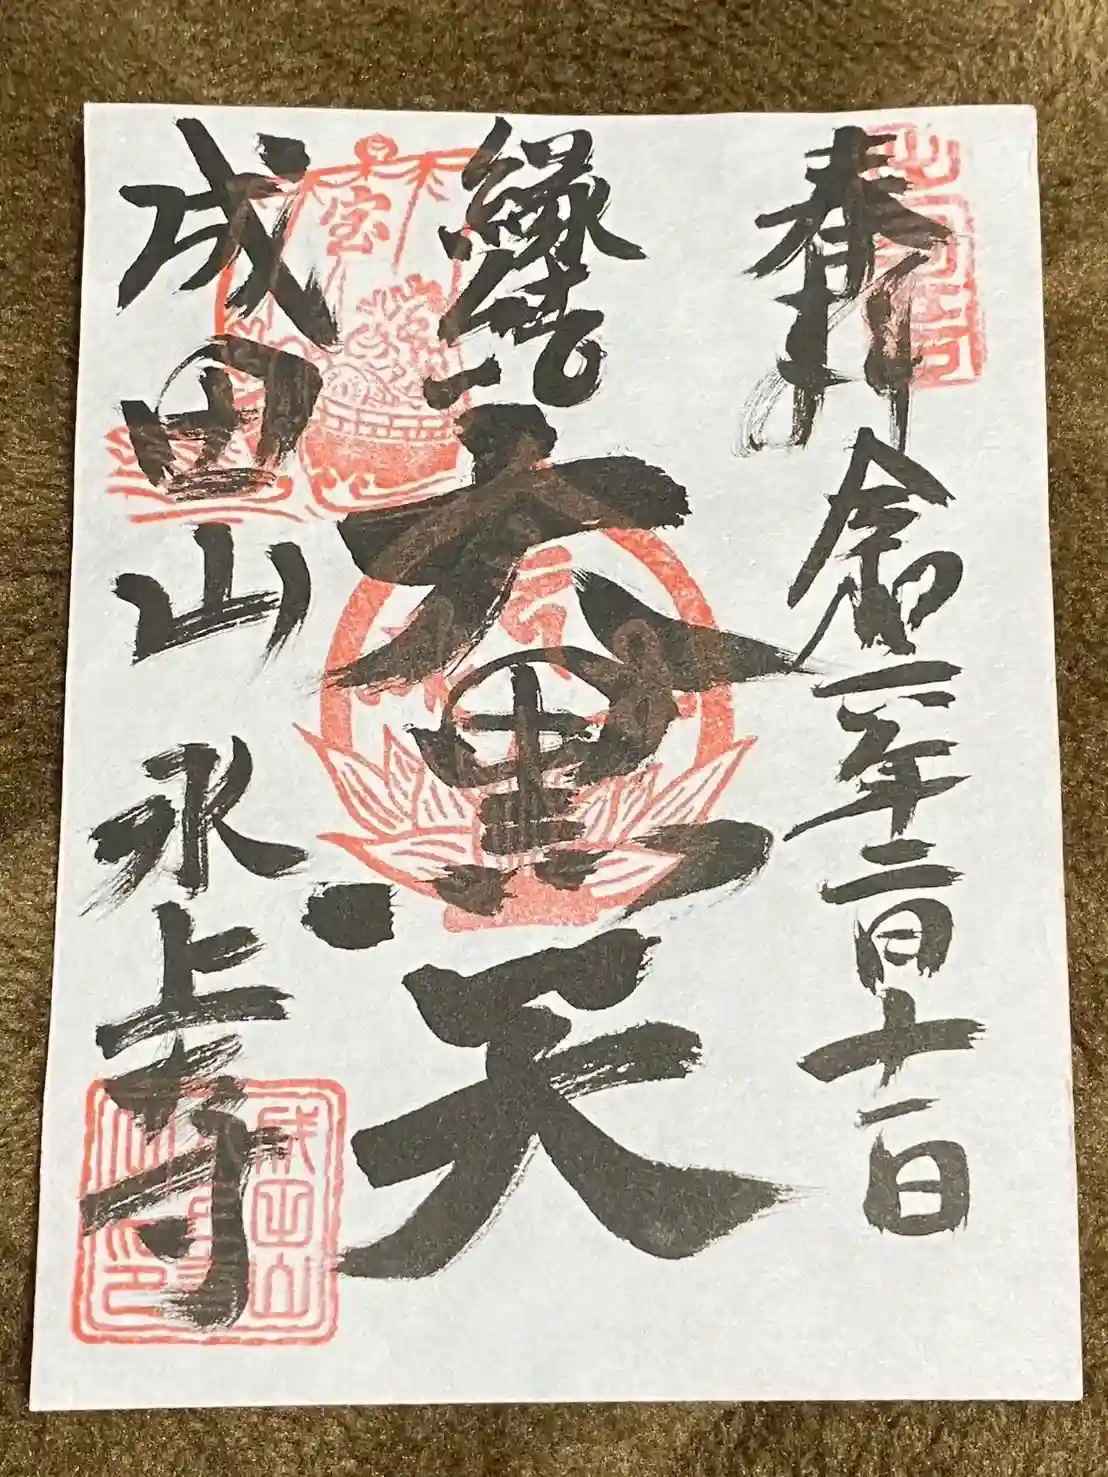 奉拝 令和二年二月十一日
縁結 大黒天
成田山 水上寺
宝
成田山